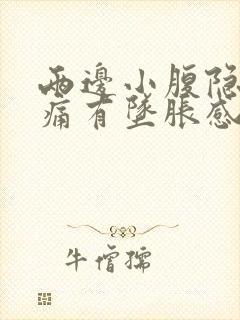 兩邊小腹隐
痛有墜脹感
牛僧孺